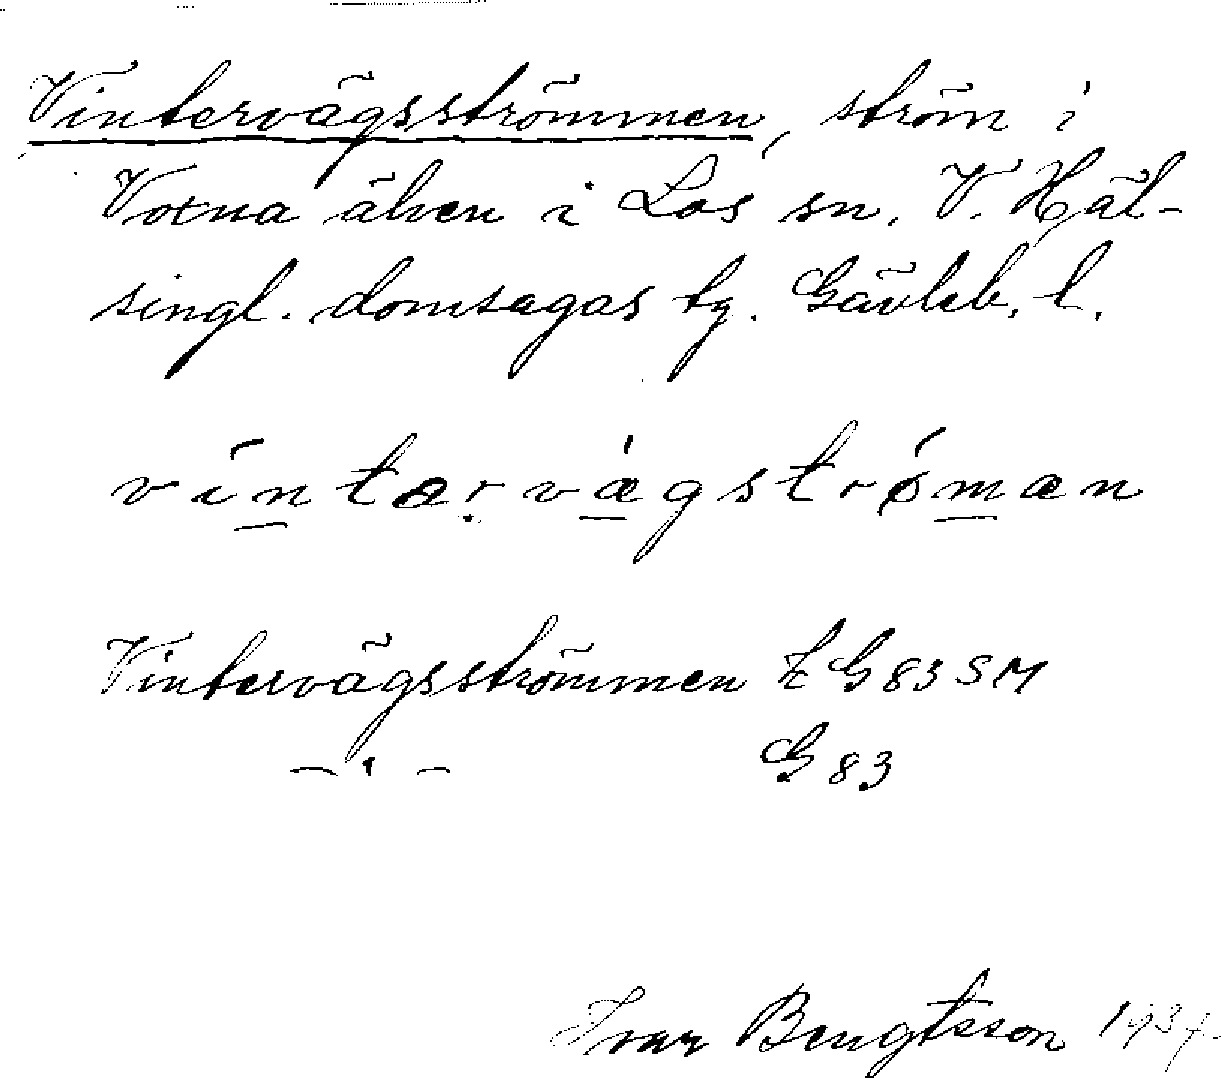 Vintervägsströmmen, ström i
Voxna älven i Los sn. V. Häl-
singl. domsagas tg. Gävleb. l.
víntærvægstrǿmæn
Vintervägsströmmen Z G 83 SM
—"— G 83
Ivar Bengtsson 1937.